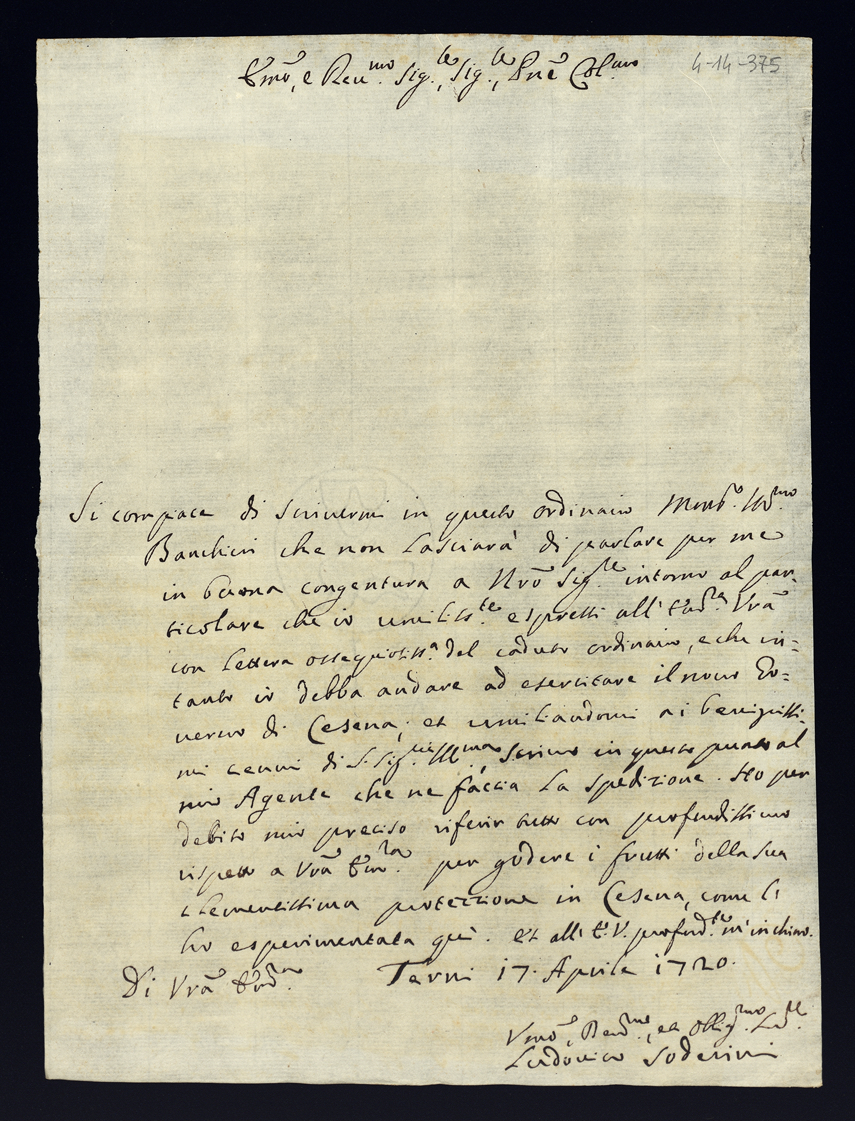 Em̃o, e Reu.mo Sig.re, Sig.re, Pñe Col.mo
4-14-375
Si compiace di scriuermi in questo ordinario Mons.r Ill.mo
Banchieri che non lasciarà di parlare per me
in buona congentura a Nrõ Sig.re intorno al par-
ticolare che io umiliss.te espressi all' Em̃.za Vrã
con lettera ossequiosiss.a del caduto ordinario, e che in=
tanto io debba andare ad esercitare il nouo Go=
uerno di Cesena; et umiliandomi ai benignissi-
mi cenni di S. Sig.ria Ill.ma, scriuo in questo punto al
mio Agente che ne faccia la spedizione. Ho per
debito mio preciso riferir tutto con profundissimo
rispetto a Vrã Em.za per godere i frutti della sua
clementissima protezzione in Cesena, come l'
ho esperimentata quì. et all' E. V. profund.te m'inchino.
Di Vrã Em̃.za Terni 17. Aprile 1720.
Vmõ, Deu.mo, et Oblig.mo Ser.re
Ludouico Soderini